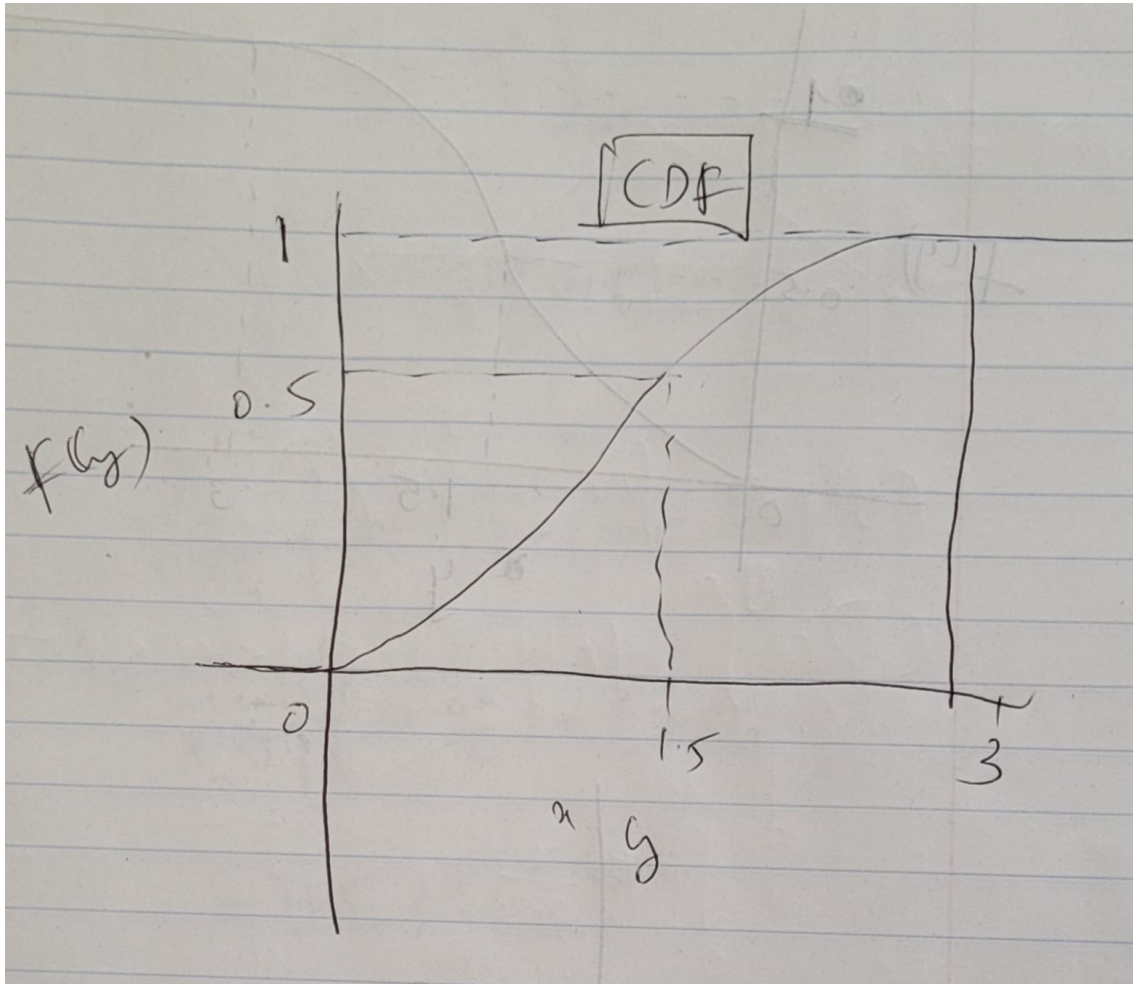 CDF
1
0.5
F(y)
0
1.5
3
x y